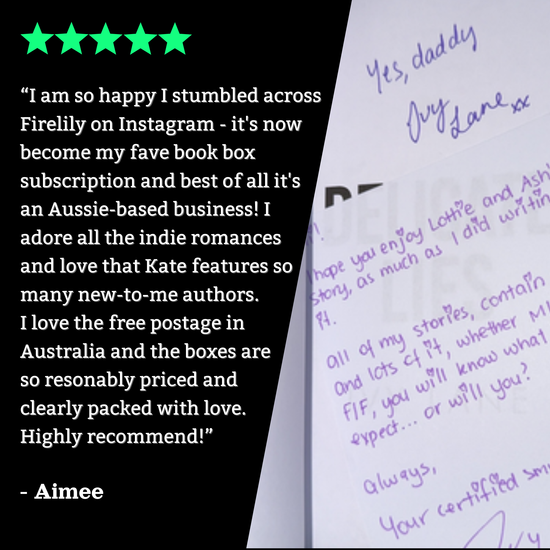 “I am so happy I stumbled across
Firelily on Instagram - it's now
become my fave book box
subscription and best of all it's
an Aussie-based business! I
adore all the indie romances
and love that Kate features so
many new-to-me authors.
I love the free postage in
Australia and the boxes are
so resonably priced and
clearly packed with love.
Highly recommend!”
- Aimee
Yes, daddy
Ivy Lane xx
DELICATE
LIES
I hope you enjoy Lottie and Ash
story, as much as I did writin
it.
all of my stories, contain
and lots of it, whether M
F/F, you will know what
expect... or will you?
always,
Your certified smu